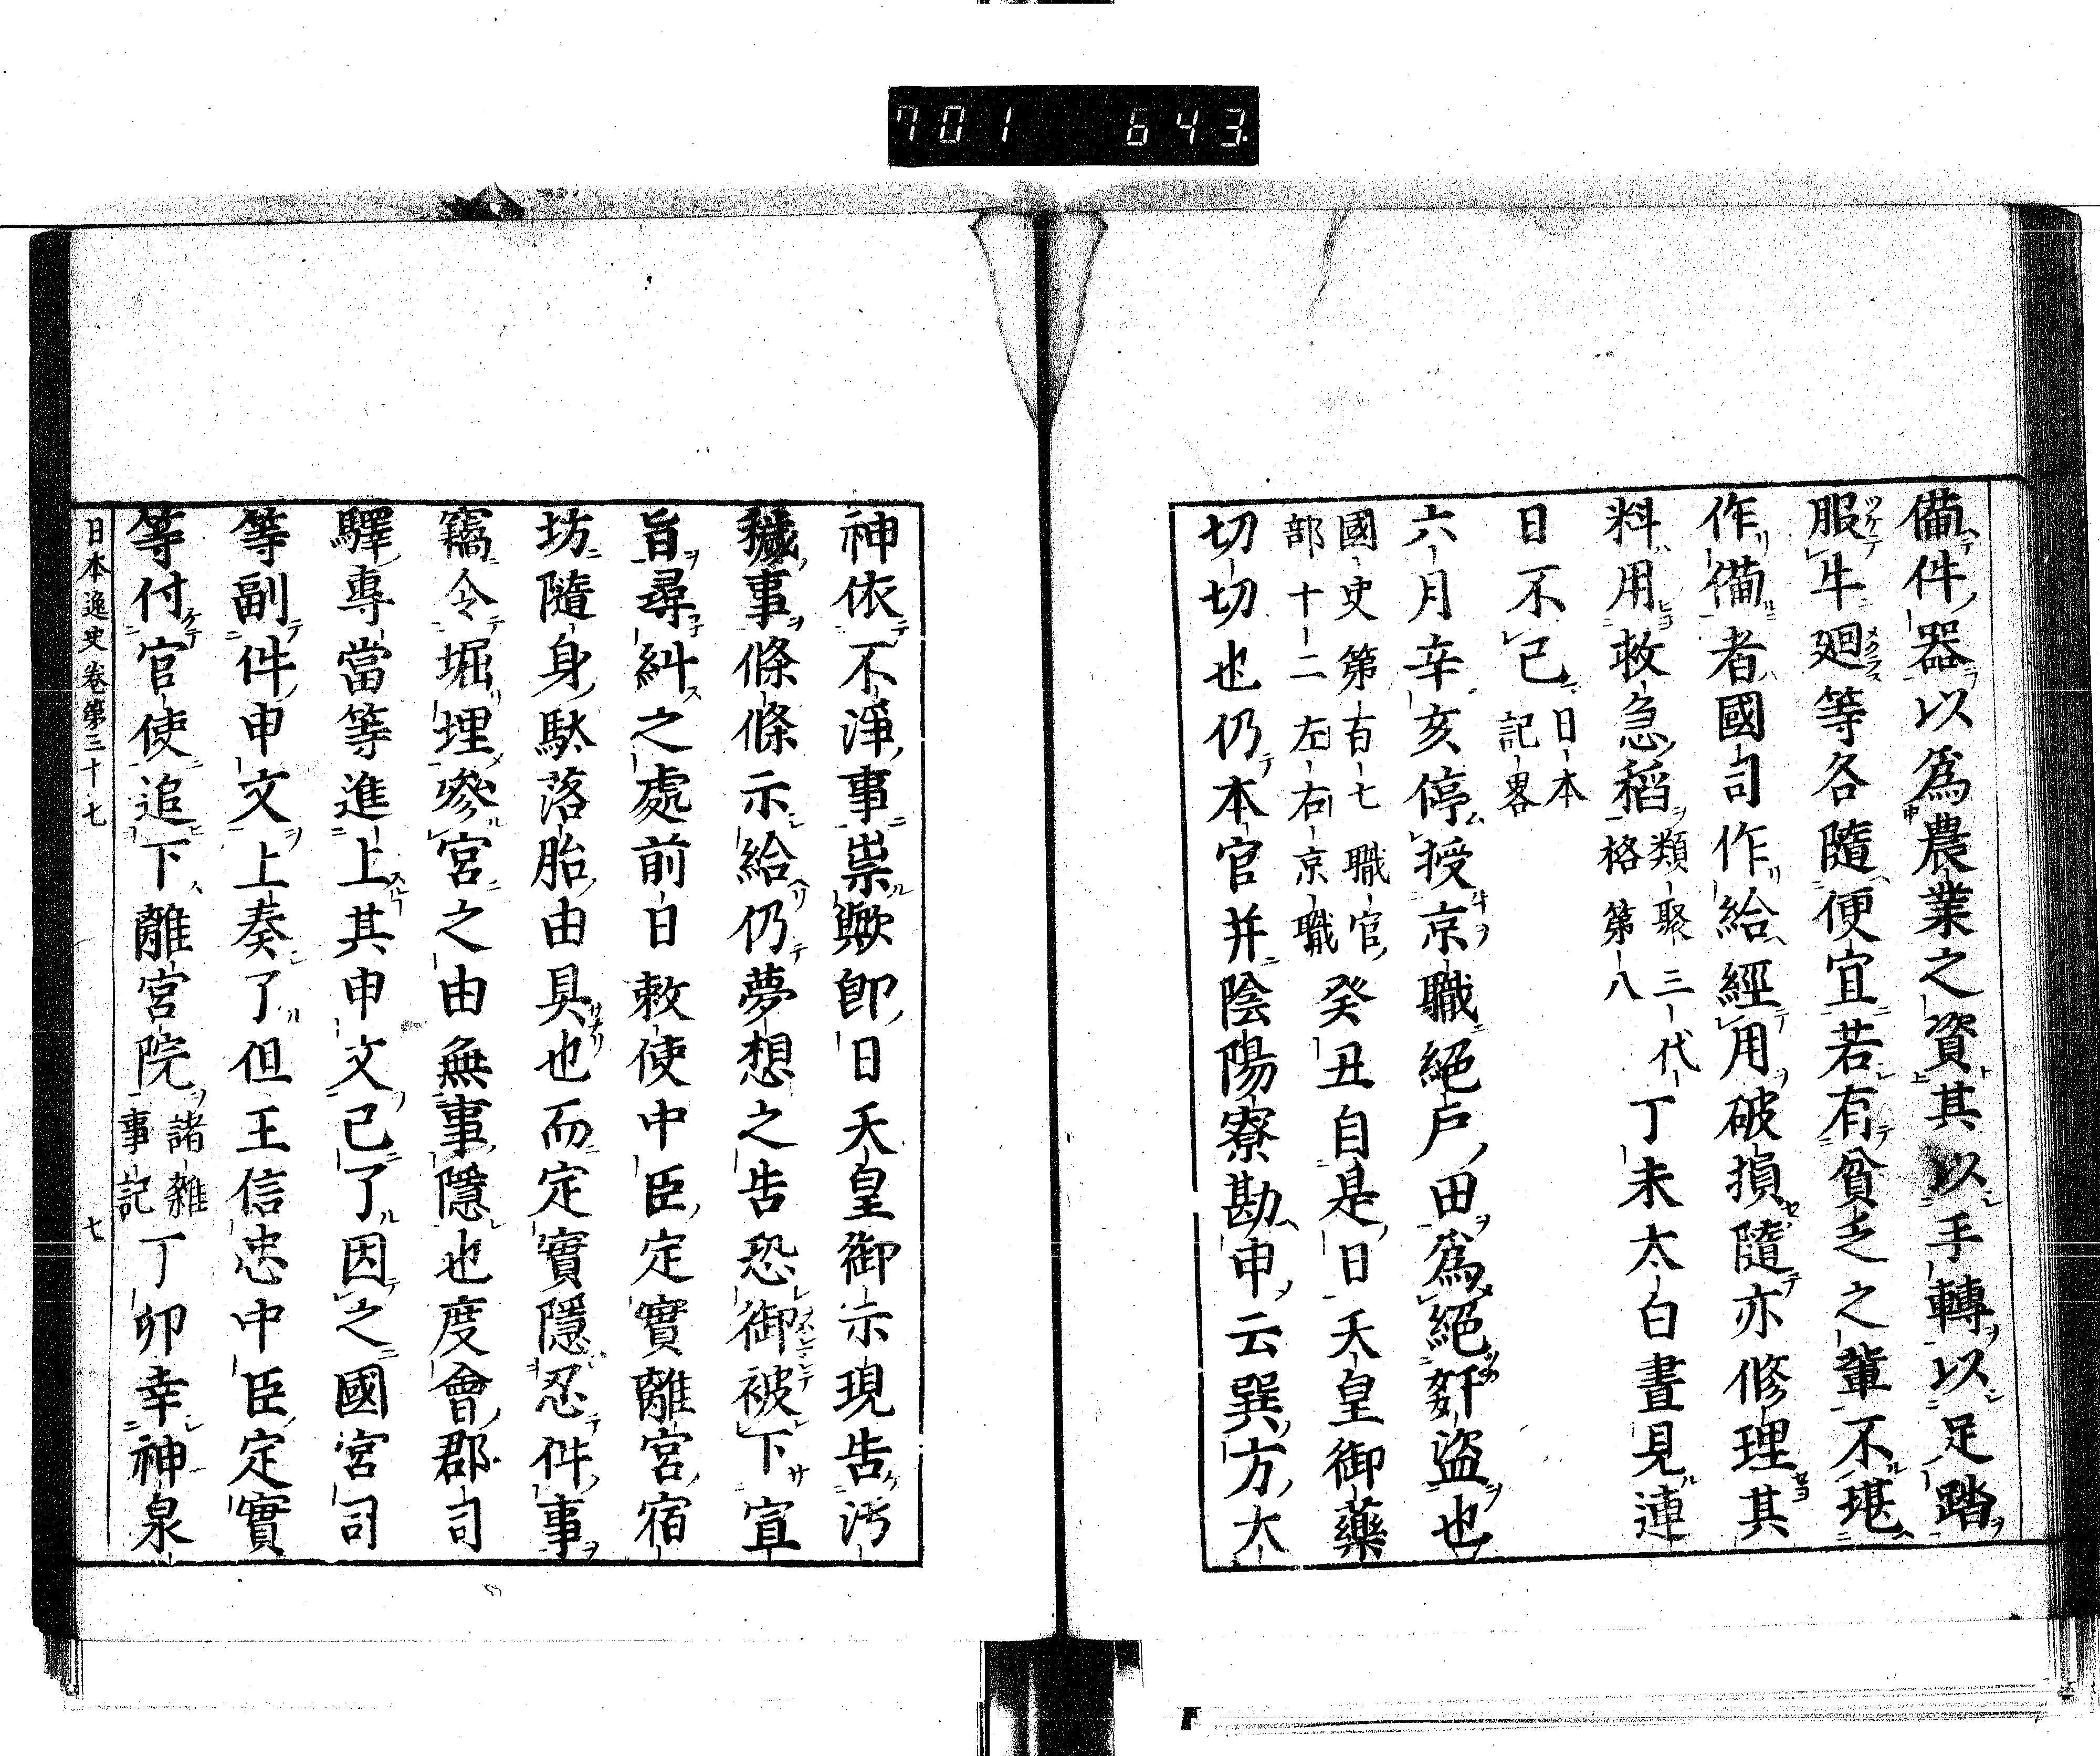 701 643
備件器以爲農業之資其以手轉以足踏
服牛廻等各隨便宜若有貧乏之輩不堪
作備者國司作給經用破損隨亦修理其
料用救急稻類聚三代格第八丁未太白晝見連
日不已日本記畧
六月辛亥停授京職絕戶田爲絕姧盜也
國史第百七職官部十二左右京職癸丑自是日天皇御藥
切切也仍本官并陰陽寮勘申云巽方太
神依不淨事祟歟卽日天皇御示現告汚
穢事條條示給仍夢想之告恐御被下宣
旨尋糾之處前日敕使中臣定實離宮宿
坊隨身駄落胎由具也而定實隱忍件事
竊令堀埋參宮之由無事隱也度會郡司
驛專當等進上其申文已了因之國宮司
等副件申文上奏了但王信忠中臣定實
等付官使追下離宮院諸雜事記丁卯幸神泉
日本逸史卷第三十七 七